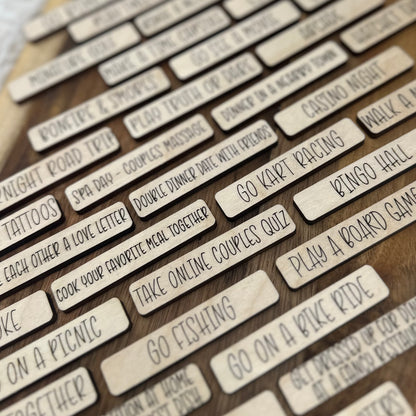 MINIATURE GOLF
MAKE A TIME CAPSULE
GO SEE A MOVIE
BONFIRE & SMORES
PLAY TRUTH OR DARE
DINNER IN A NEARBY TOWN
CASINO NIGHT
NIGHT ROAD TRIP
SPA DAY - COUPLES MASSAGE
DOUBLE DINNER DATE WITH FRIENDS
GO KART RACING
BINGO HALL
WALK A
TATTOOS
EACH OTHER A LOVE LETTER
COOK YOUR FAVORITE MEAL TOGETHER
TAKE ONLINE COUPLES QUIZ
PLAY A BOARD GAM
OKE
ON A PICNIC
GO FISHING
GO ON A BIKE RIDE
GET DRESSED UP FOR D
AT A FANCY RESTAU
TOGETHER
AT HOME